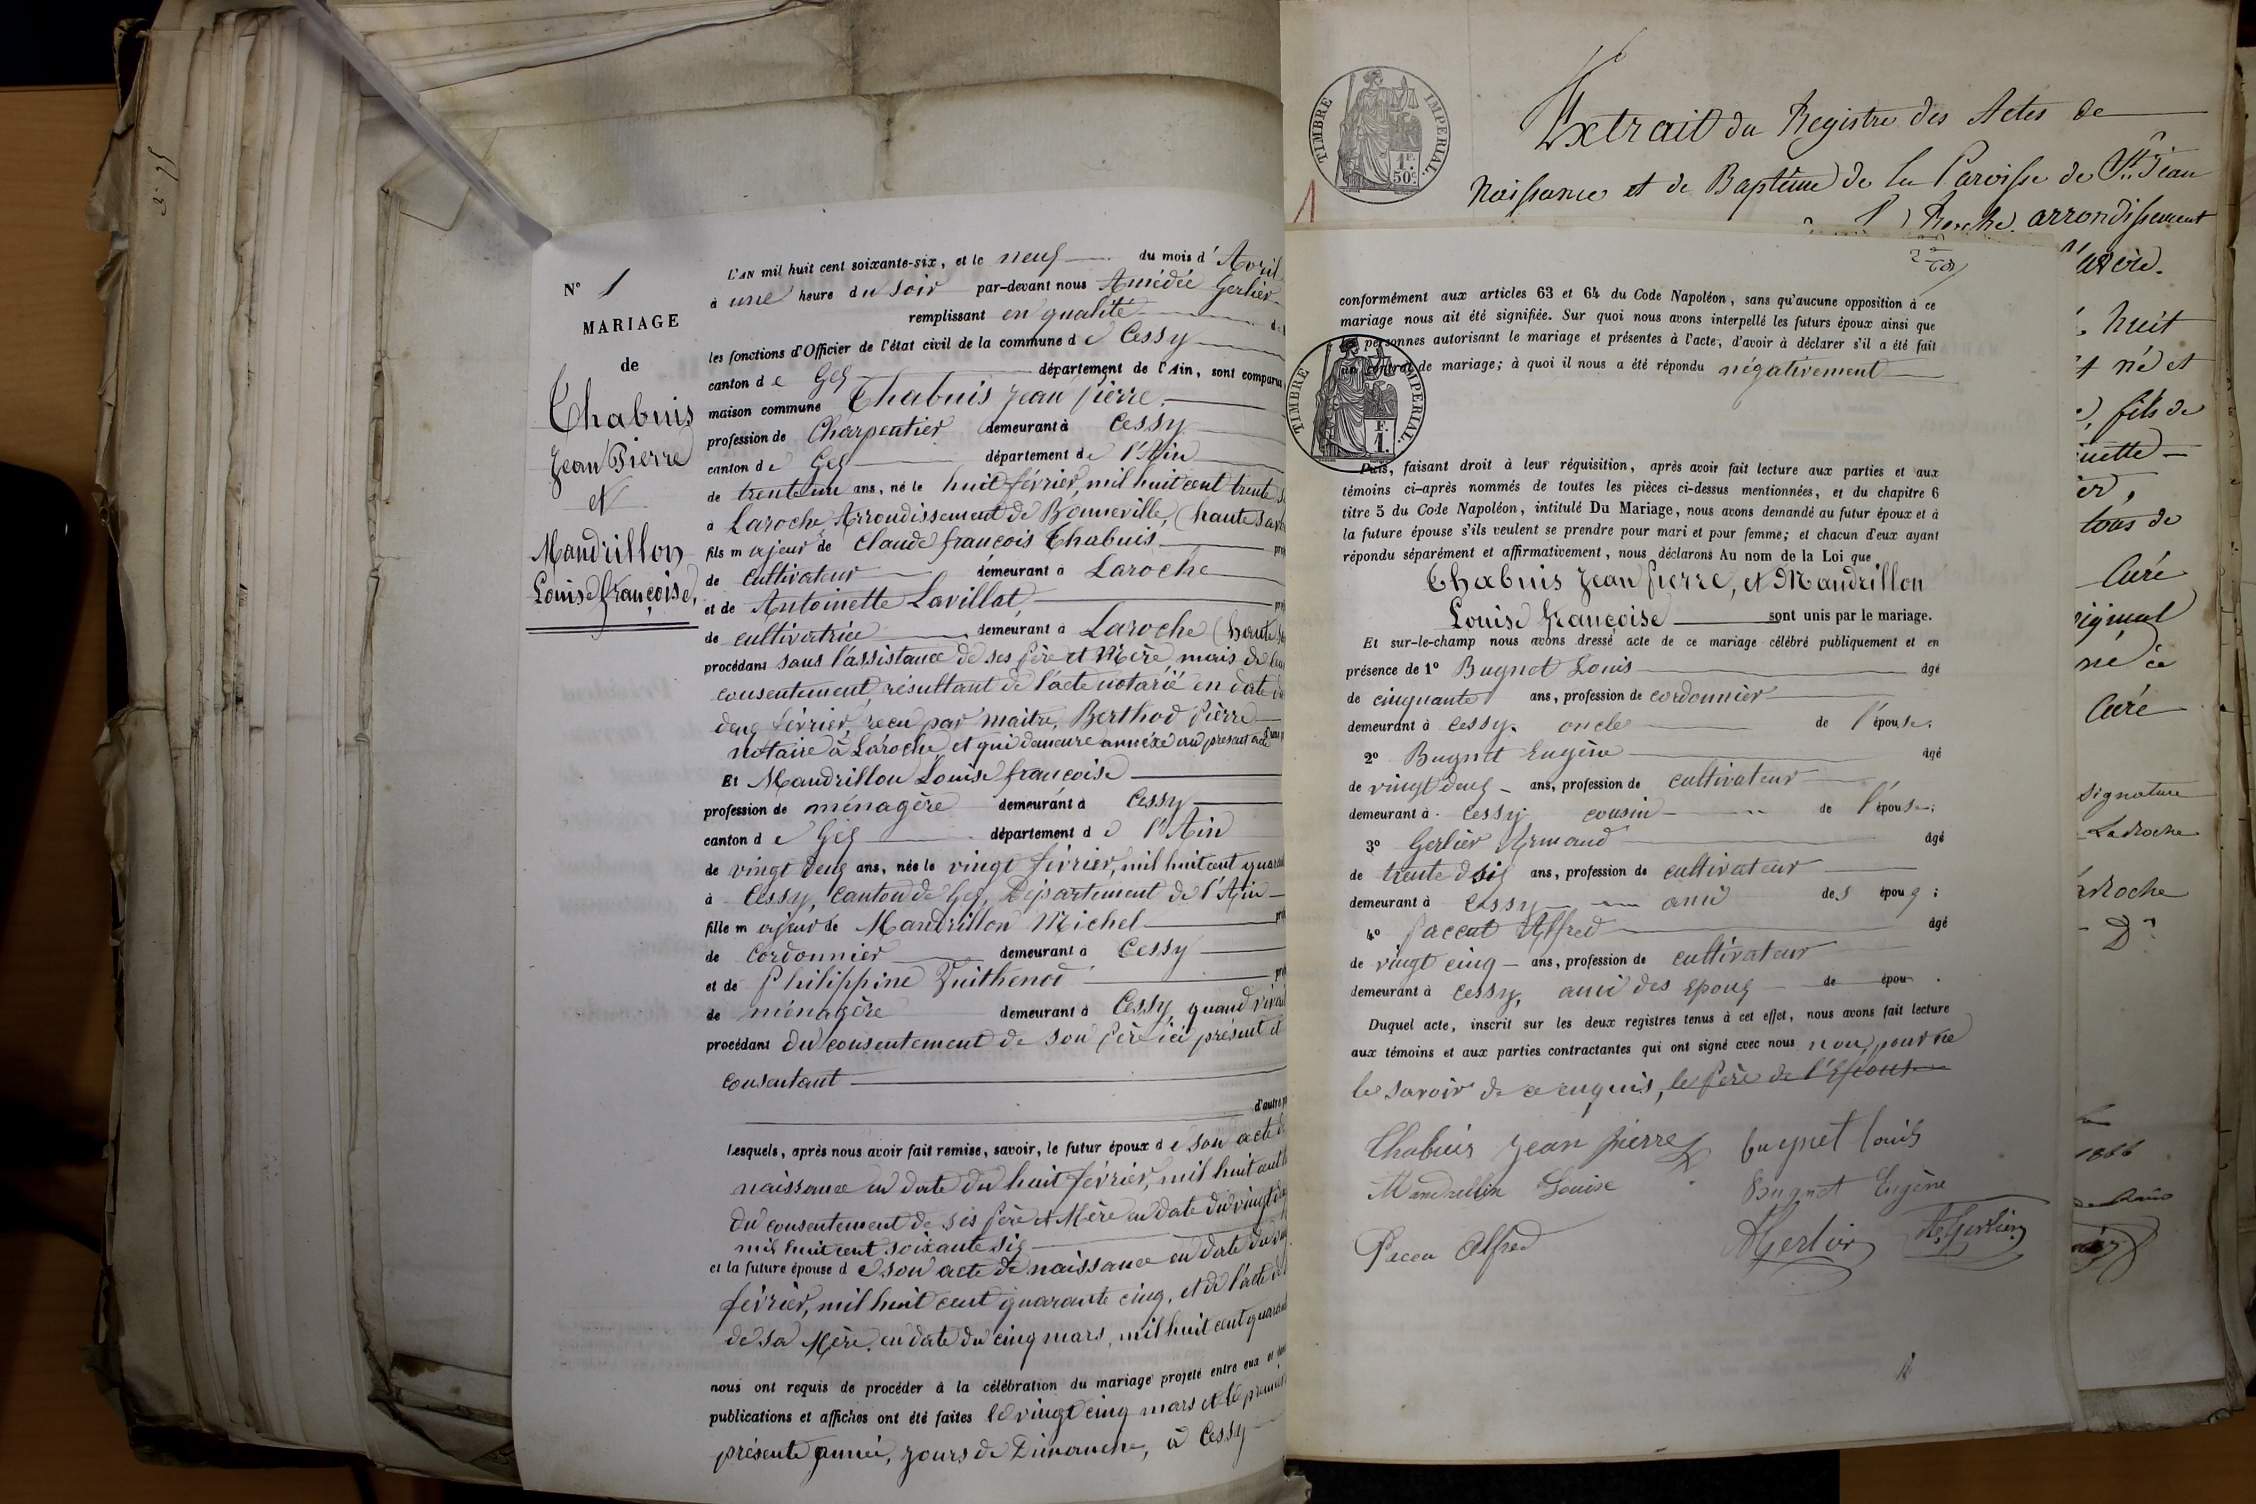 N° 1
MARIAGE
de
Chabuis
Jean Pierre
et
Mandrillon
Louise françoise,
L'AN mil huit cent soixante-six, et le neuf du mois d'Avril
à une heure du soir par-devant nous Amédée Gerlier
remplissant en qualité
les fonctions d'Officier de l'état civil de la commune de Cessy
canton de Gex département de l'Ain, sont comparus
maison commune Chabuis Jean Pierre
profession de Charpentier demeurant à Cessy
canton de Gex département de l'Ain
de trente un ans, né le huit février, mil huit cent trente
à Laroche, Arrondissement de Bonneville, (haute
fils majeur de Claude françois Chabuis
de cultivateur demeurant à Laroche
et de Antoinette Lavillat,
de cultivatrice demeurant à Laroche (haute
procédant sans l'assistance de ses père et Mère mais de leur
consentement, résultant de l'acte notarié en date du
deux février, reçu par maitre, Berthod Pierre
notaire à Laroche, et qui demeure annéxé au présent acte
Et Mandrillon Louise françoise
profession de ménagère demeurant à Cessy
canton de Gex département de l'Ain
de vingt deux ans, née le vingt février, mil huit cent
à Cessy, Canton de Gex, Département de l'Ain
fille majeure de Mandrillon Michel
de Cordonnier demeurant à Cessy
et de Philippine
de ménagère demeurant à Cessy, quand
procédant du consentement de son père ici présent et
consentant
d'autre
Lesquels, après nous avoir fait remise, savoir, le futur époux de son acte de
naissance en date du huit février, mil huit cent
du consentement de ses père et Mère en date du vingt
mil huit cent soixante six
et la future épouse de son acte de naissance en date du
février, mil huit cent quarante cinq, et de l'acte de
de sa Mère, en date du cinq mars, mil huit cent
nous ont requis de procéder à la célébration du mariage projeté entre eux et
publications et affiches ont été faites le vingt cinq mars et le premier
présente année, jours de Dimanche, à Cessy
TIMBRE IMPERIAL.
1F. 50c.
1
Extrait du Registre des Actes de
Naissance et de Baptême de la Paroisse de St. Jean
Roche arrondissement
conformément aux articles 63 et 64 du Code Napoléon, sans qu'aucune opposition à ce
mariage nous ait été signifiée. Sur quoi nous avons interpellé les futurs époux ainsi que
les personnes autorisant le mariage et présentes à l'acte, d'avoir à déclarer s'il a été fait
un contrat de mariage; à quoi il nous a été répondu négativement
TIMBRE IMPERIAL.
F. 1.
Puis, faisant droit à leur réquisition, après avoir fait lecture aux parties et aux
témoins ci-après nommés de toutes les pièces ci-dessus mentionnées, et du chapitre 6
titre 5 du Code Napoléon, intitulé Du Mariage, nous avons demandé au futur époux et à
la future épouse s'ils veulent se prendre pour mari et pour femme; et chacun d'eux ayant
répondu séparément et affirmativement, nous déclarons Au nom de la Loi que
Chabuis Jean Pierre, et Mandrillon
Louise françoise sont unis par le mariage.
Et sur-le-champ nous avons dressé acte de ce mariage célébré publiquement et en
présence de 1° Bugnot Louis âgé
de cinquante ans, profession de cordonnier
demeurant à Cessy. oncle de l'épouse;
2° Bugnot Eugène âgé
de vingt deux ans, profession de cultivateur
demeurant à Cessy cousin de l'épouse;
3° Gerlier Armand âgé
de trente six ans, profession de cultivateur
demeurant à Cessy ami des époux;
4° Paccat Alfred âgé
de vingt cinq ans, profession de cultivateur
demeurant à Cessy, ami des époux de épou
Duquel acte, inscrit sur les deux registres tenus à cet effet, nous avons fait lecture
aux témoins et aux parties contractantes qui ont signé avec nous non, pour ne
le savoir de ce enquis, le père de l'épouse
Chabuis Jean Pierre
bugnet louis
Mandrillin Louise
Bugnot Eugène
Alfred
AGerlier
A. Gerlier
huit
né et
fils de
Curé
né ce
Curé
signature
LaRoche
1866